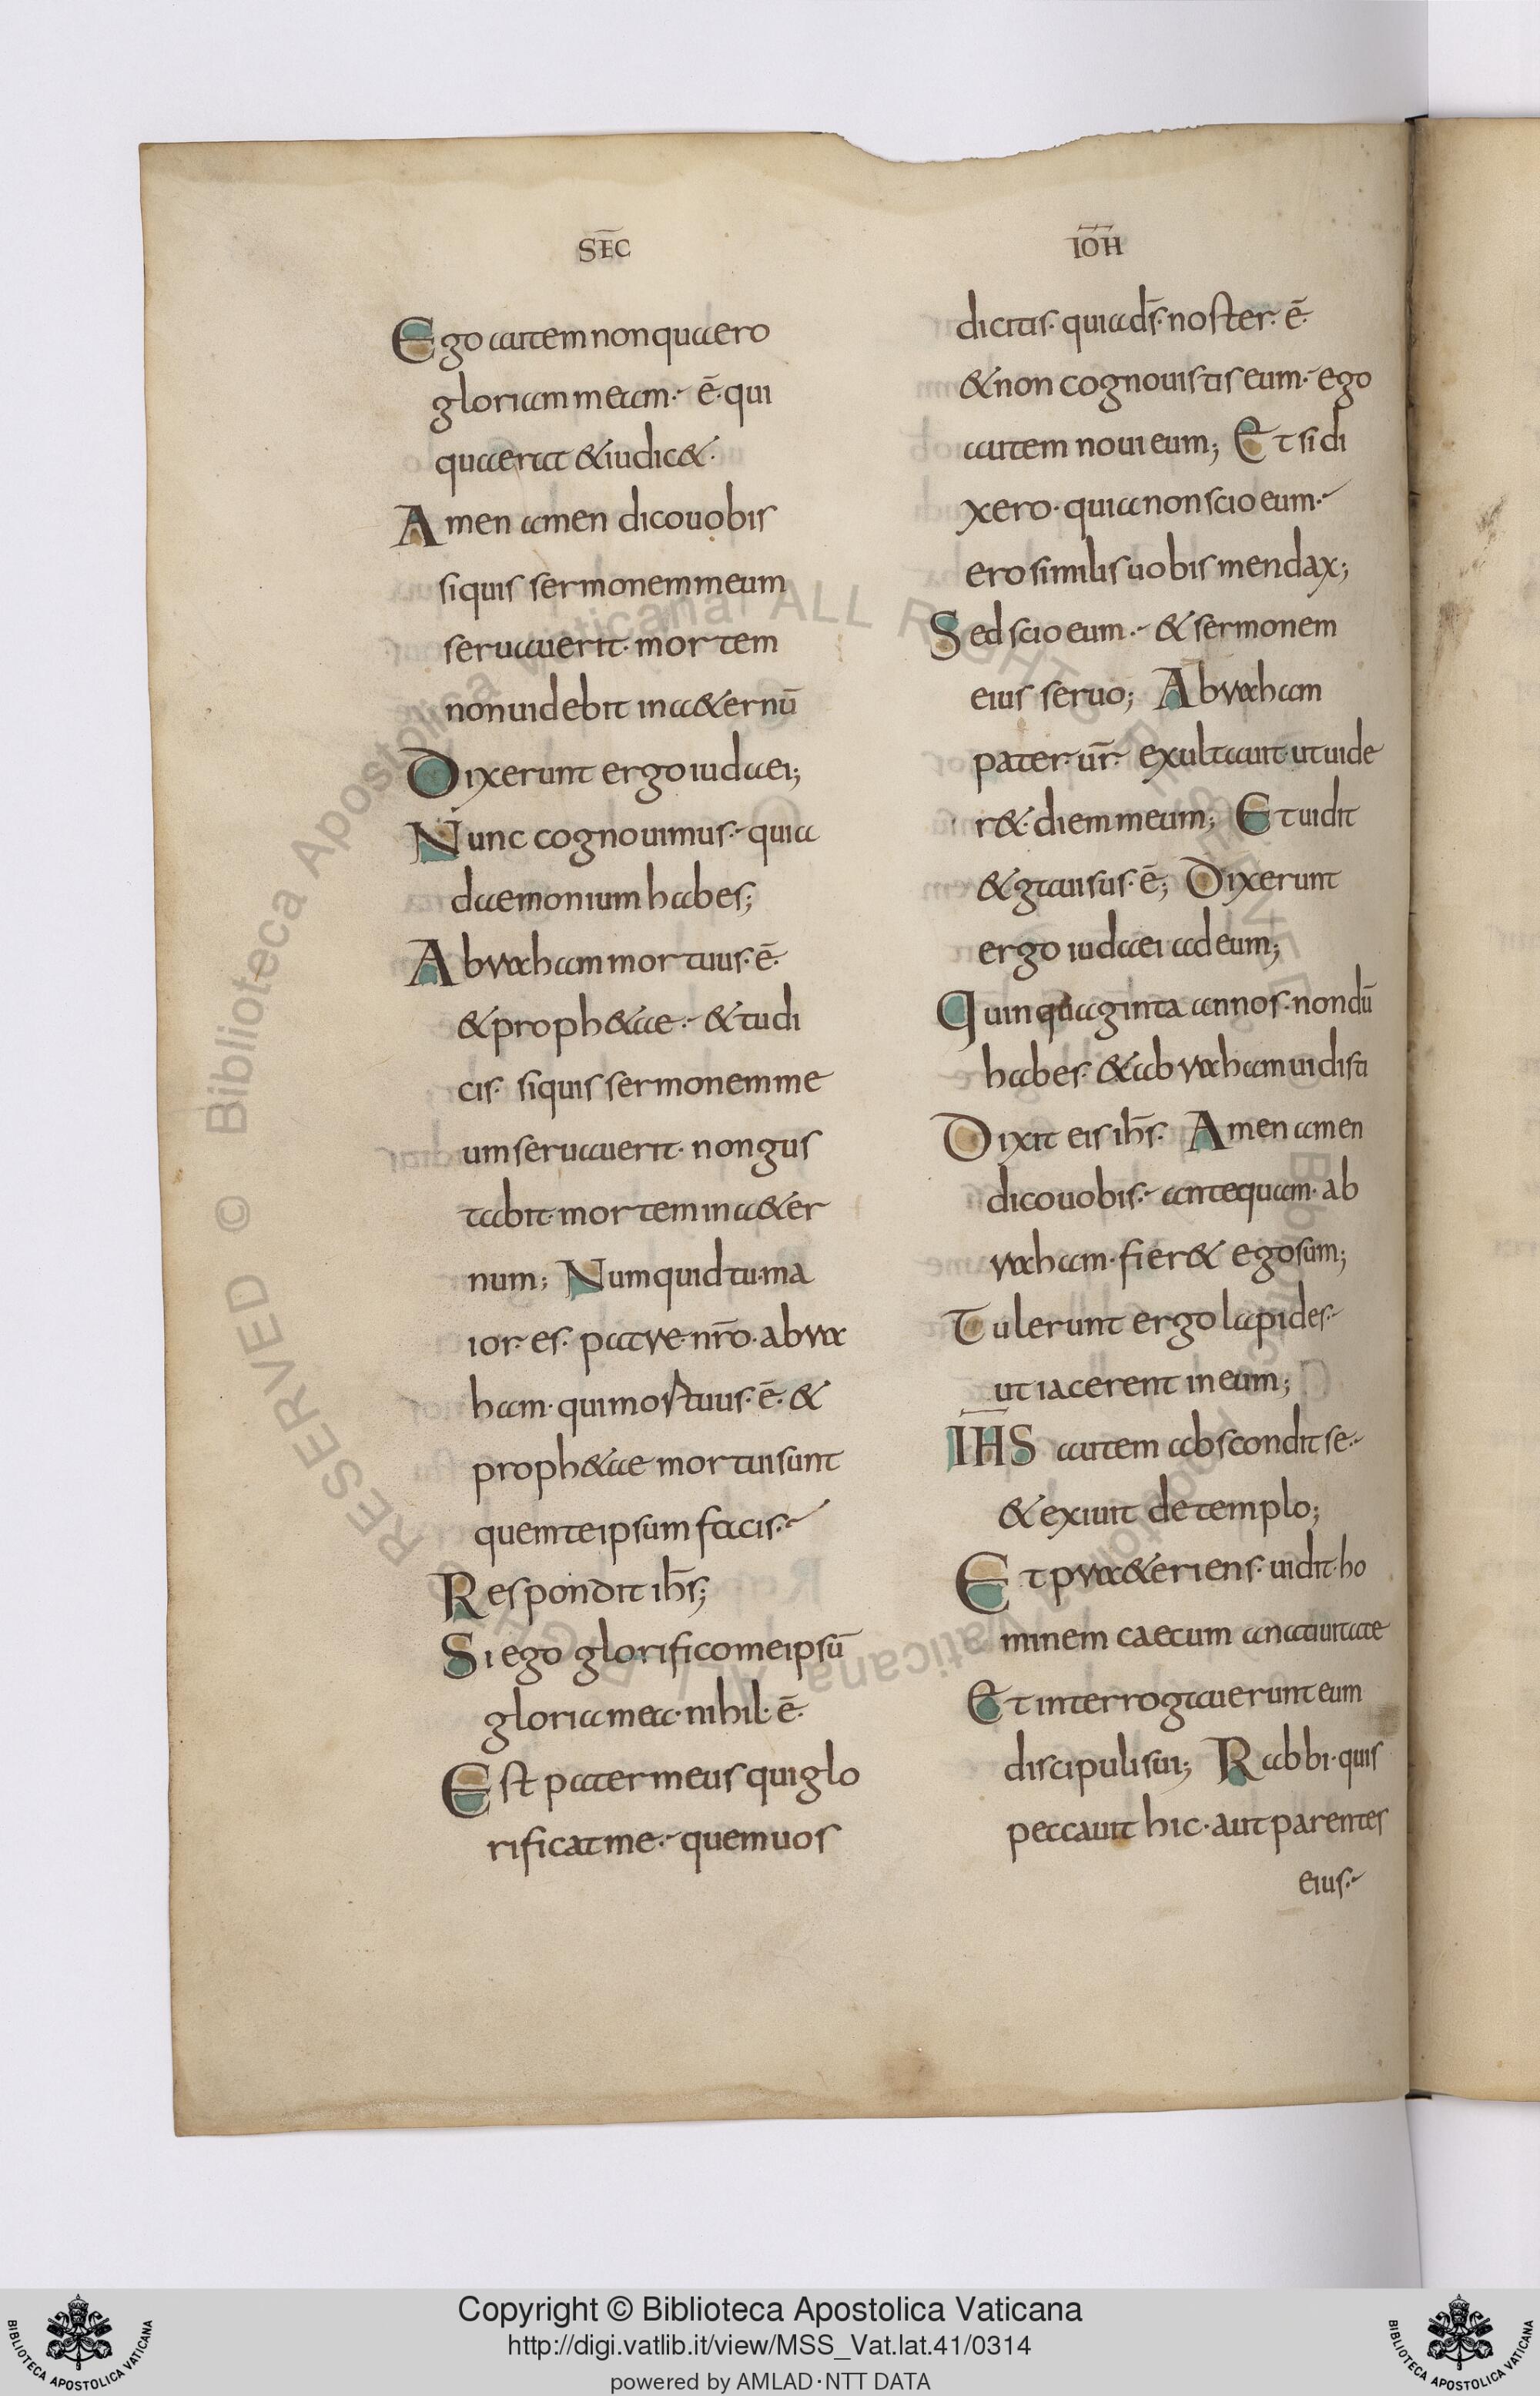 SEC̄
Ego autem non quaero
gloriam meam. ē. qui
quaerat & iudic&.
Amen amen dico uobis
siquis sermonem meum
seruauerit. mortem
non uidebit in a&ernū
Dixerunt ergo iudaei;
Nunc cognouimus. quia
daemonium habes;
Abraham mortuus. ē.
& proph&ae. & tu di
cis. siquis sermonem me
um seruauerit. non gus
tabit. mortem in a&er
num; Numquid tu. ma
ior. es. patre. nr̄o. abra
ham. qui mortuus. ē. &
proph&ae mortui sunt
quem te ipsum facis.
Respondit ih̄s;
Si ego glorifico me ipsū
gloria mea. nihil. ē.
Est pater meus qui glo
rificat me. quem uos
IOH̄
dicitis. quia ds̄. noster. ē.
& non cognouistis eum. ego
autem noui eum; Et si di
xero. quia non scio eum.
ero similis uobis mendax;
Sed scio eum. & sermonem
eius seruo; Abraham
pater. ur̄. exultauit. ut uide
r&. diem meum; Et uidit
& gauisus. ē; Dixerunt
ergo iudaei ad eum;
Quinquaginta annos. nondū
habes. & abraham uidisti
Dixit eis ih̄s. Amen amen
dico uobis. antequam. ab
raham. fier& ego sum;
Tulerunt ergo lapides.
ut iacerent in eum;
IH̄S autem abscondit se.
& exiuit de templo;
Et pra&eriens. uidit. ho
minem caecum a natiuitate
Et interrogauerunt eum
discipuli sui; Rabbi. quis
peccauit hic. aut parentes
eius.
Copyright © Biblioteca Apostolica Vaticana
http://digi.vatlib.it/view/MSS_Vat.lat.41/0314
powered by AMLAD·NTT DATA
BIBLIOTECA APOSTOLICA VATICANA
BIBLIOTECA APOSTOLICA VATICANA